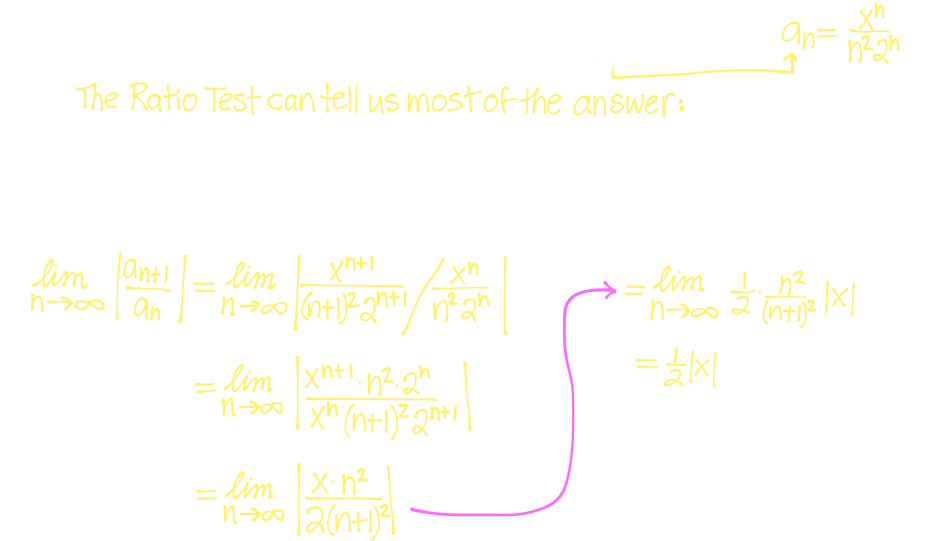 aₙ = xⁿ / n²2ⁿ
The Ratio Test can tell us most of the answer:
lim n→∞ |aₙ₊₁ / aₙ| = lim n→∞ |xⁿ⁺¹ / (n+1)²2ⁿ⁺¹ / xⁿ / n²2ⁿ|
= lim n→∞ |xⁿ⁺¹·n²·2ⁿ / xⁿ(n+1)²2ⁿ⁺¹|
= lim n→∞ |x·n² / 2(n+1)²|
= lim n→∞ 1/2 · n²/(n+1)² |x|
= 1/2|x|